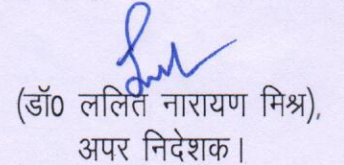 (डॉ0 ललित नारायण मिश्र),
अपर निदेशक।